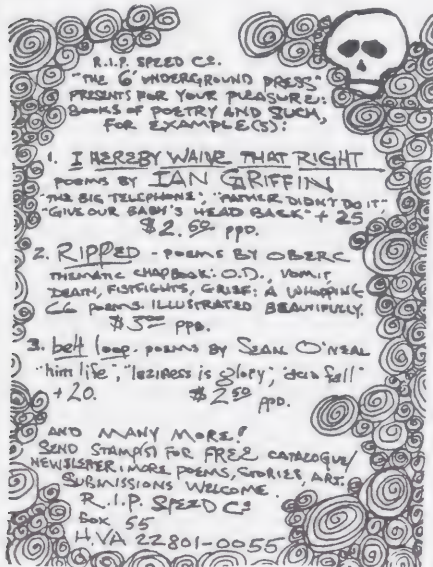 R.I.P. SPEED CO.
"THE 6' UNDERGROUND PRESS"
PRESENTS FOR YOUR PLEASURE:
BOOKS OF POETRY AND SUCH,
FOR EXAMPLE(S):
1. I HEREBY WAIVE THAT RIGHT
POEMS BY IAN GRIFFIN
"THE BIG TELEPHONE", "FATHER DIDN'T DO IT"
"GIVE OUR BABY'S HEAD BACK" + 25
$2.50 PPD.
2. RIPPED - POEMS BY OBERC
THEMATIC CHAPBOOK: O.D., VOMIT,
DEATH, FISTFIGHTS, GRIEF: A WHOPPING
66 POEMS. ILLUSTRATED BEAUTIFULLY.
$3.00 PPD.
3. belt loop. POEMS BY SEAN O'NEAL
"him life", "laziness is glory", "acid fall"
+ 20. $2.50 PPD.
AND MANY MORE!
SEND STAMP(S) FOR FREE CATALOGUE/
NEWSLETER: MORE POEMS, STORIES, ART.
SUBMISSIONS WELCOME.
R.I.P. SPEED CO
BOX 55
H.VA 22801-0055